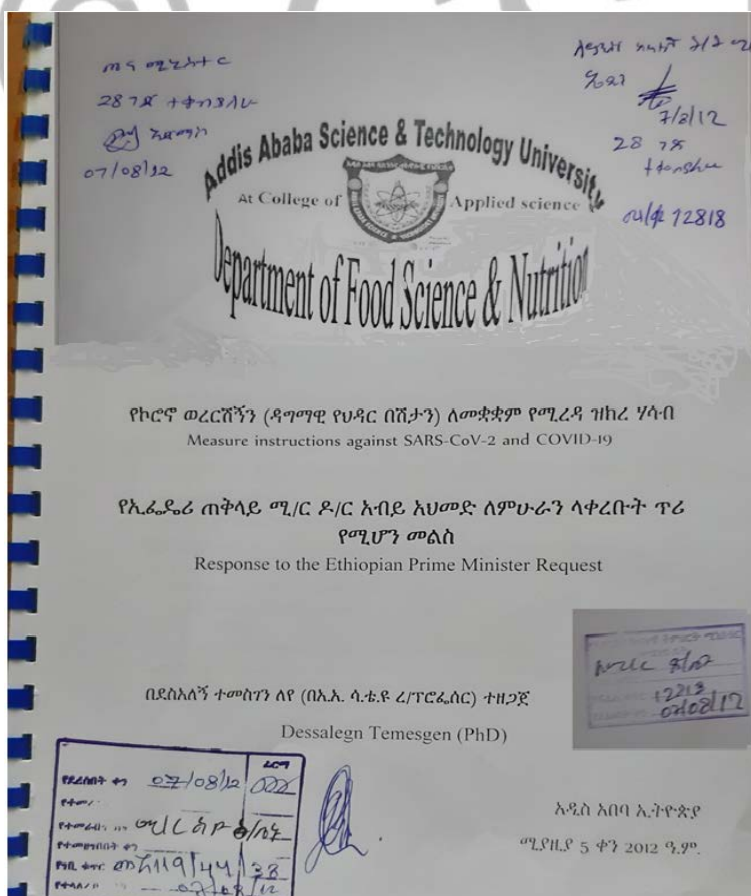 28 ገጽ
07/08/12
7/8/12
28 ገጽ
12818
Addis Ababa Science & Technology University
At College of Applied science
Department of Food Science & Nutrition
የኮሮኖ ወረርሽኝን (ዳግማዊ የህዳር በሽታን) ለመቋቋም የሚረዳ ዝክረ ሃሳብ
Measure instructions against SARS-CoV-2 and COVID-19
የኢፌዴሪ ጠቅላይ ሚ/ር ዶ/ር አብይ አህመድ ለምሁራን ላቀረቡት ጥሪ
የሚሆን መልስ
Response to the Ethiopian Prime Minister Request
12818
07/08/12
በደስአለኝ ተመስገን ለየ (በአ.አ. ሳ.ቴ.ዩ ረ/ፕሮፌሰር) ተዘጋጀ
Dessalegn Temesgen (PhD)
ፊርማ
07/08/12
አዲስ አበባ ኢትዮጵያ
ሚያዚያ 5 ቀን 2012 ዓ.ም.